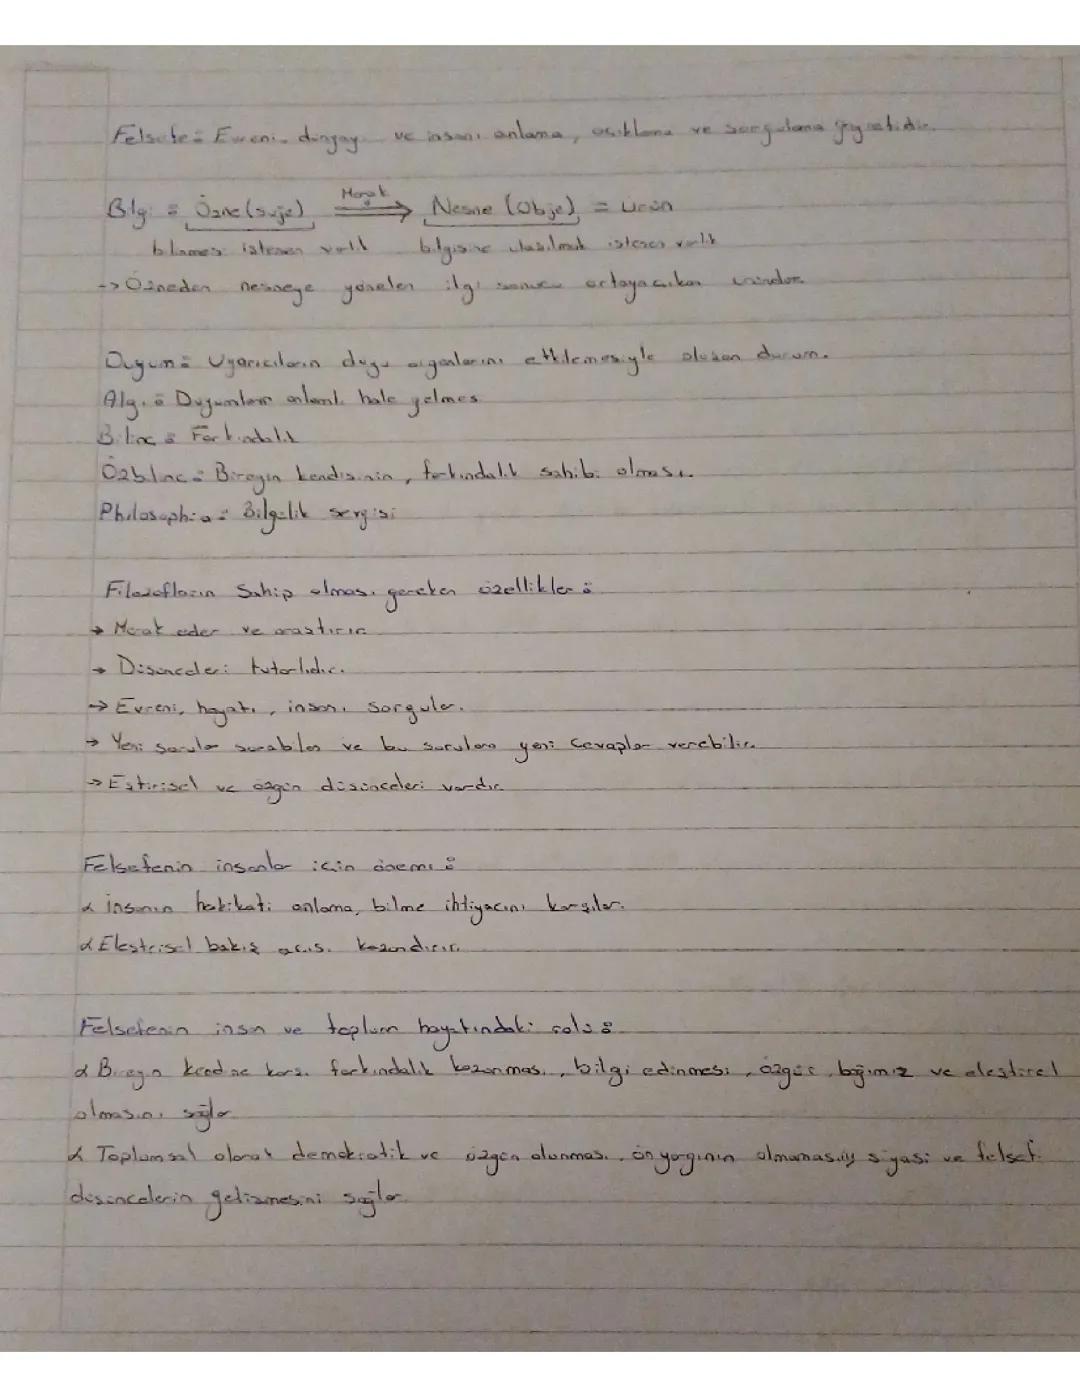 Felsefe: Evreni, dünyayı ve insanı anlama, açıklama ve sorgulama gayretidir.
Bilgi: Özne (suje) Merak → Nesne (Obje) = Ürün
bilmesi istenen varlık bilgisine ulaşılmak istenen varlık
-> Özneden nesneye yönelen ilgi sonucu ortaya çıkan üründür.
Duyum: Uyarıcıların duyu organlarını etkilemesiyle oluşan durum.
Algı: Duyumların anlamlı hale gelmesi
Bilinç: Farkındalık
Özbilinç: Bireyin kendisinin, farkındalık sahibi olması.
Philosophia: Bilgelik sevgisi
Filozofların Sahip olması gereken özellikler:
→ Merak eder ve araştırır.
→ Düşünceleri tutarlıdır.
→ Evreni, hayatı, insanı sorgular.
→ Yeni sorular sorabilen ve bu sorulara yeni cevaplar verebilir.
→ Eştirisel ve özgün düşünceleri vardır.
Felsefenin insanlar için önemi:
α İnsanın hakikati anlama, bilme ihtiyacını karşılar.
α Elestrisel bakış açısı kazandırır.
Felsefenin insan ve toplum hayatındaki rolü:
α Bireyin kendine karşı farkındalık kazanması, bilgi edinmesi, özgür, bağımız ve eleştirel
olmasını sağlar
α Toplumsal olarak demokratik ve özgün olunması, önyargının olmaması, siyasi ve felsefi
düşüncelerin gelişmesini sağlar.